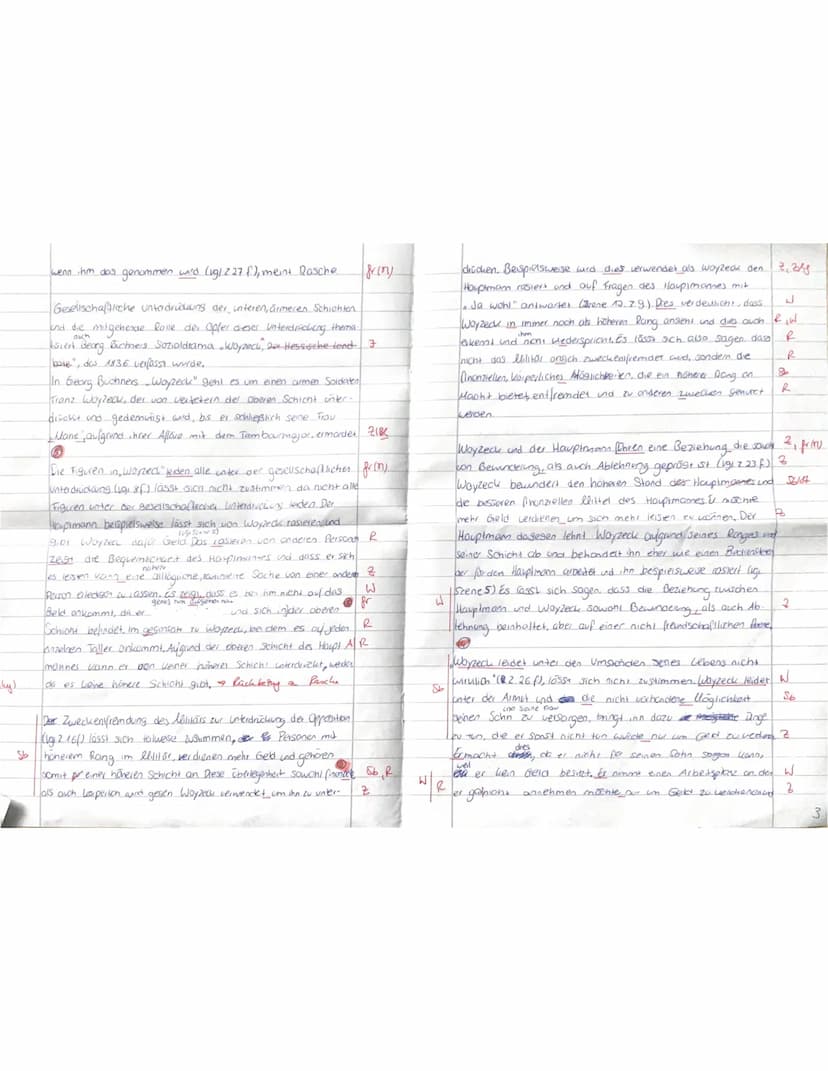 wenn ihm das genommen wird (vgl Z 27 f), meint Rasche. gr (n)
Gesellschaftliche Unterdrückung der unteren, ärmeren Schichten
und die mitgehende Rolle der Opfer dieser Unterdrückung thema-
auch
tisiert Georg Büchners Sozialdrama „Woyzeck", Der Hessische Land- Z
bote", das 1836 verfasst wurde.
In Georg Büchners „Woyzeck" geht es um einen armen Soldaten
Franz Woyzeck, der von Vertretern der oberen Schicht unter-
drückt und gedemütigt wird, bis er schließlich seine Frau
„Marie", aufgrund ihrer Affäre mit dem Tambourmajor, ermordet
Die Figuren in „Woyzeck" leiden alle unter der gesellschaftlichen gr (n)
Unterdrückung (vgl 8f) lässt sich nicht zustimmen da nicht alle
Figuren unter der gesellschaftlichen Unterdrückung leiden Der
Hauptmann beispielsweise lässt sich von Woyzeck rasieren und
gibt Woyzeck dafür Geld. Das rasieren von anderen Person R
zeigt die Bequemlichkeit des Hauptmannes und dass er sich
es leisten kann, eine alltägliche, Sache von einer anderen Z
Person erledigen zu lassen. Es zeigt, dass es bei ihm nicht auf das W
Geld ankommt, da er und sich in der oberen gr
Schicht befindet. Im gegensatz zu Woyzeck, bei dem es auf jeden R
einzelnen Taller ankommt. Aufgrund der oberen Schicht des Haupt A R
mannes kann er von keiner höheren Schicht unterdrückt werden
da es keine höhere Schicht gibt. → Rückbezug a Rasche
Der Zweckentfremdung des Militärs zur Unterdrückung der Opposition
(vgl Z 16f) lässt sich teilweise zustimmen, Personen mit
Sb höherem Rang im Militär, verdienen mehr Geld und gehören
somit einer höheren Schicht an Diese Überlegenheit sowohl finanziell Sb, R
als auch körperlich wird gegen Woyzeck verwendet um ihn zu unter- Z
drücken. Beispielsweise wird dies verwendet als Woyzeck den
Hauptmann rasiert und auf Fragen des Hauptmannes mit
„Ja wohl" antwortet (Szene 12. Z 9). Dies verdeutlicht, dass W
Woyzeck in immer noch als höheren Rang ansieht und dies auch R, W
ihm
erkennt und nicht wiederspricht. Es lässt sich also sagen dass R
nicht das Militär ansich zweckentfremdet wird, sondern die R
finanziellen, körperliches Möglichkeiten, die ein höherer Rang an Sb
Macht bietet, entfremdet und zu anderen zwecken genutzt R
werden.
Woyzeck und der Hauptmann führen eine Beziehung, die sowohl Z, gr (n)
von Bewunderung, als auch Ablehnung geprägt ist (vgl Z 23 f) Z
Woyzeck bewundert den höheren Stand des Hauptmannes und
die besseren finanziellen Mittel des Hauptmannes. Er möchte
mehr Geld verdienen um sich mehr leisten zu können. Der Z
Hauptmann dagegen lehnt Woyzeck aufgrund seines Ranges und
seiner Schicht ab und behandelt ihn eher wie einen
der für den Hauptmann arbeitet und ihn beispielsweise rasiert (vgl
Szene 5) Es lässt sich sagen dass die Beziehung zwischen
W Hauptmann und Woyzeck sowohl Bewunderung, als auch Ab- Z
lehnung beinhaltet, aber auf einer nicht freundschaftlichen Ebene.
„Woyzeck leidet unter den Umständen seines Lebens nicht
wirklich" (Z. 26 f), lässt sich nicht zustimmen. Woyzeck leidet W
Sb unter der Armut und die nicht vorhandene Möglichkeit Sb
und seine Frau
seinen Sohn zu versorgen, bringt ihn dazu Dinge
zu tun, die er sonst nicht tun würde nur um Geld zu verdienen. Z
Er macht dies, da er nicht für seinen Sohn sorgen kann,
weil
er kein Geld besitzt. Er nimmt einen Arbeitsplatz an den W
W R er annehmen möchte nur um Geld zu verdienen und Z
3